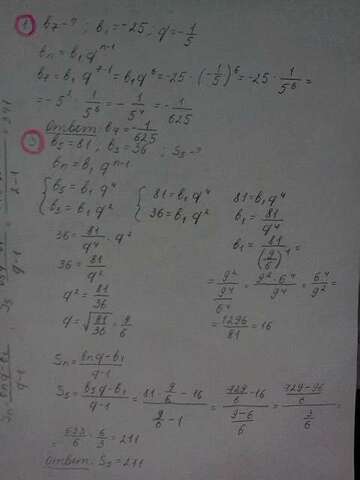 ① b₇ - ? ; b₁ = -25 ; q = -1/5
bₙ = b₁qⁿ⁻¹
b₇ = b₁q⁷⁻¹ = b₁q⁶ = -25 · (-1/5)⁶ = -25 · 1/5⁶ =
= -5² · 1/5⁶ = -1/5⁴ = -1/625
Ответ: b₇ = -1/625
b₅ = 81 ; b₃ = 36 ; S₅ - ?
bₙ = b₁qⁿ⁻¹
{ b₅ = b₁q⁴ { 81 = b₁q⁴ 81 = b₁q⁴
b₃ = b₁q² 36 = b₁q² b₁ = 81/q⁴
36 = 81/q⁴ · q² b₁ = 81/(9/6)⁴ =
36 = 81/q² = 9²/(9⁴/6⁴) = 9² · 6⁴/9⁴ = 6⁴/9² =
q² = 81/36
q = √81/36 = 9/6 = 1296/81 = 16
Sₙ = bₙq - b₁/q - 1
S₅ = b₅q - b₁/q - 1 = 81 · 9/6 - 16/9/6 - 1 = 729/6 - 16/9 - 6/6 = 729 - 96/6/3/6 =
= 633/6 · 6/3 = 211
Ответ: S₅ = 211